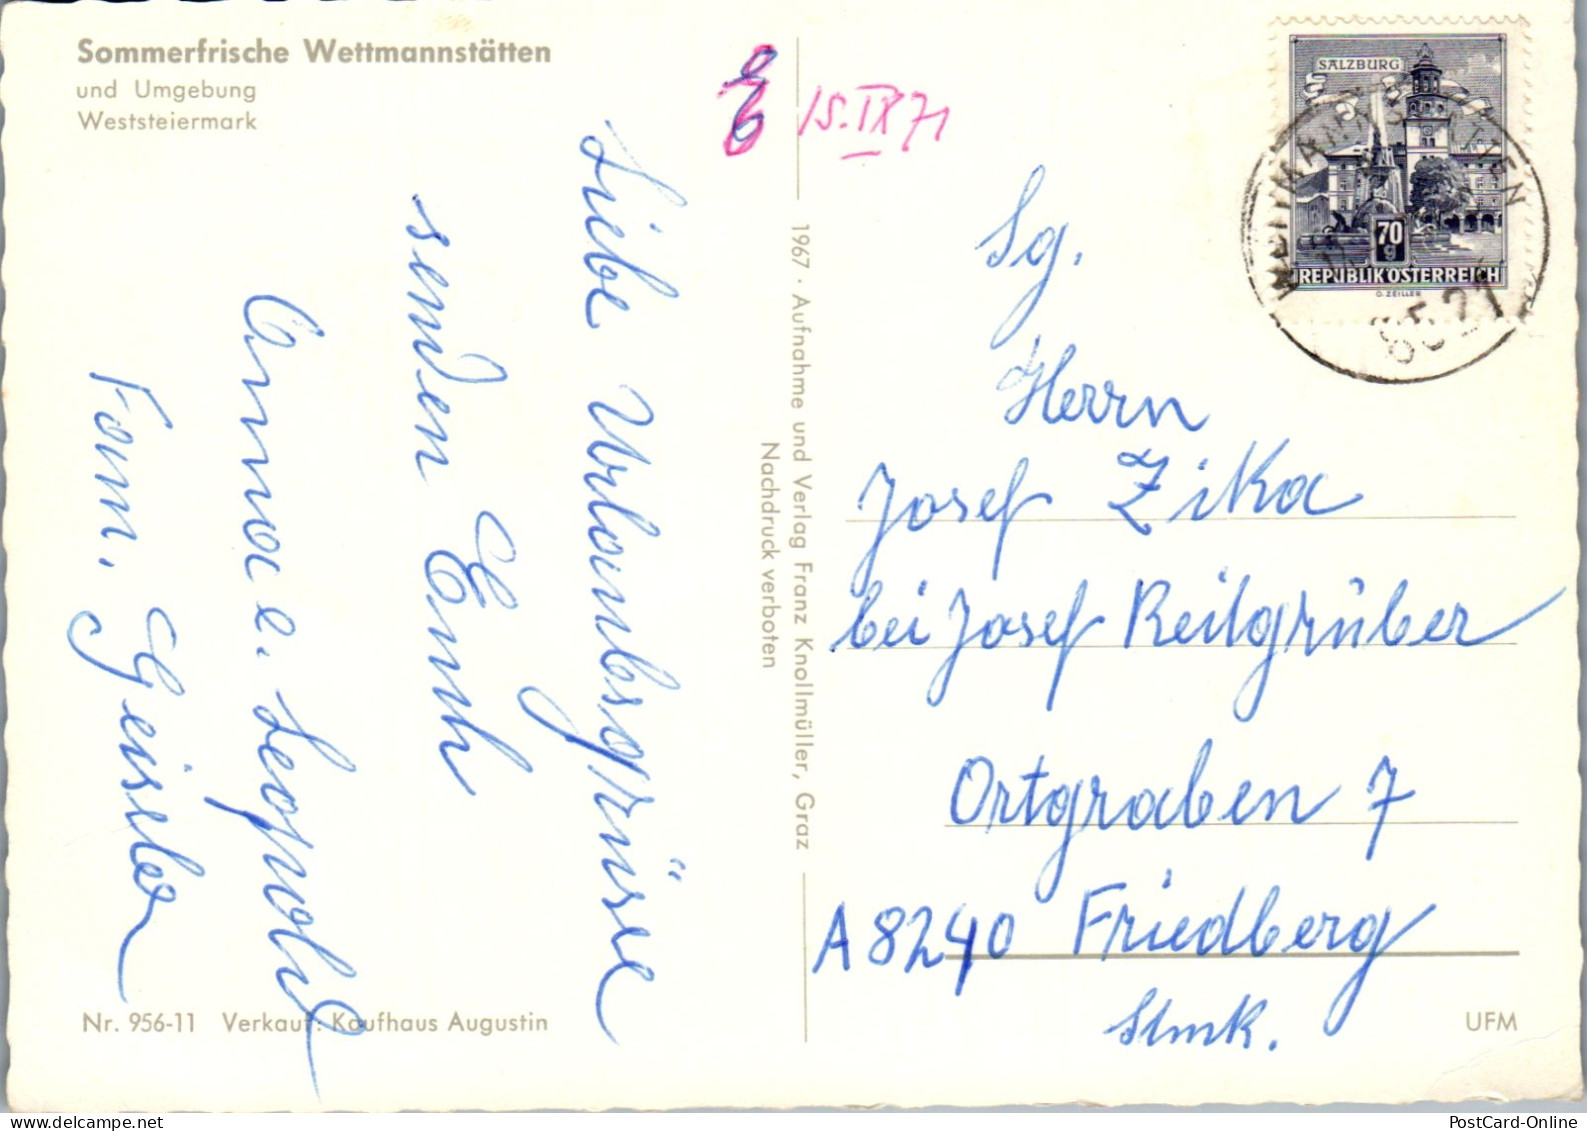 Sommerfrische Wettmannstätten
und Umgebung
Weststeiermark
15. IX 71
Liebe Urlaubsgrüsse
senden Euch
Anna e. Leopold
Fam. Geissler
1967 · Aufnahme und Verlag Franz Knollmüller, Graz
Nachdruck verboten
SALZBURG
70
g
REPUBLIK ÖSTERREICH
O. ZEILLER
8521
Sg.
Herrn
Josef Zika
bei Josef Reilgrüber
Ortgraben 7
A 8240 Friedberg
Stmk.
Nr. 956-11 Verkauf: Kaufhaus Augustin
UFM
PostCard-Online